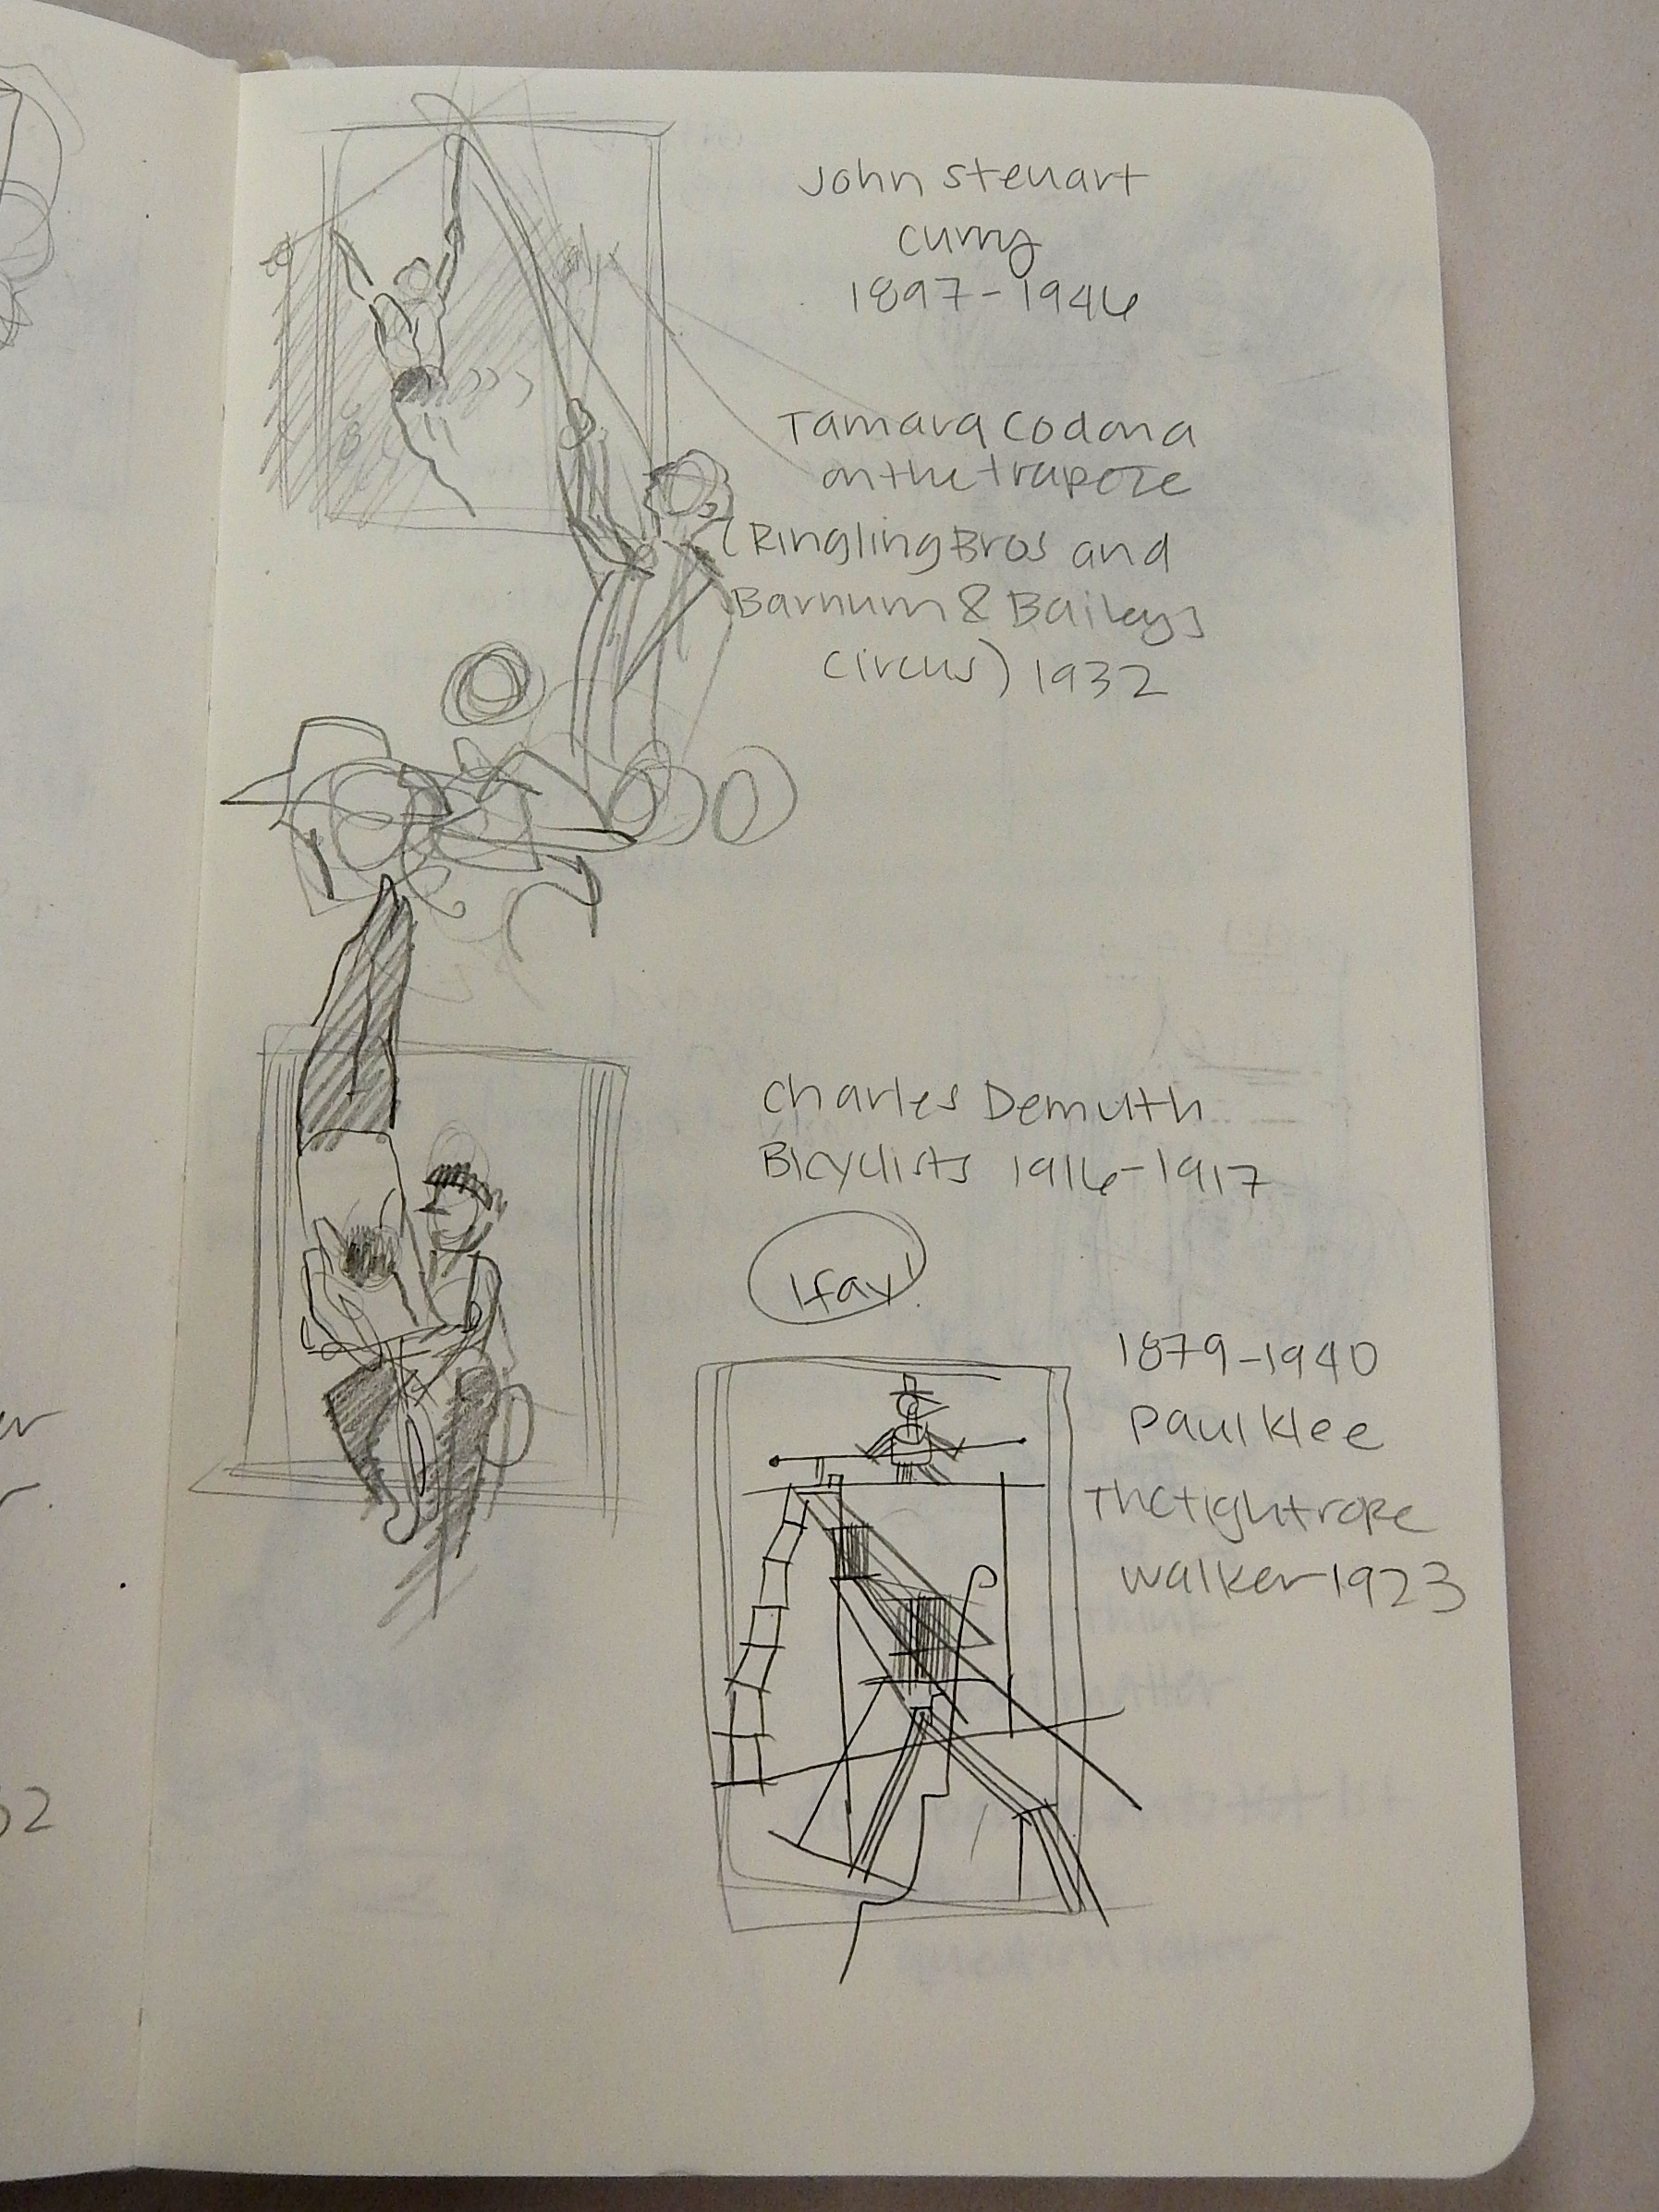 John Steuart
Curry
1897-1946
Tamara Codona
on the trapeze
(Ringling Bros and
Barnum & Baileys
circus) 1932
Charles Demuth
Bicyclists 1916-1917
1879-1940
Paul Klee
The tightrope
walker 1923